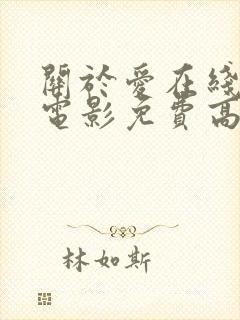 關於愛在綫
電影免費高
林如斯